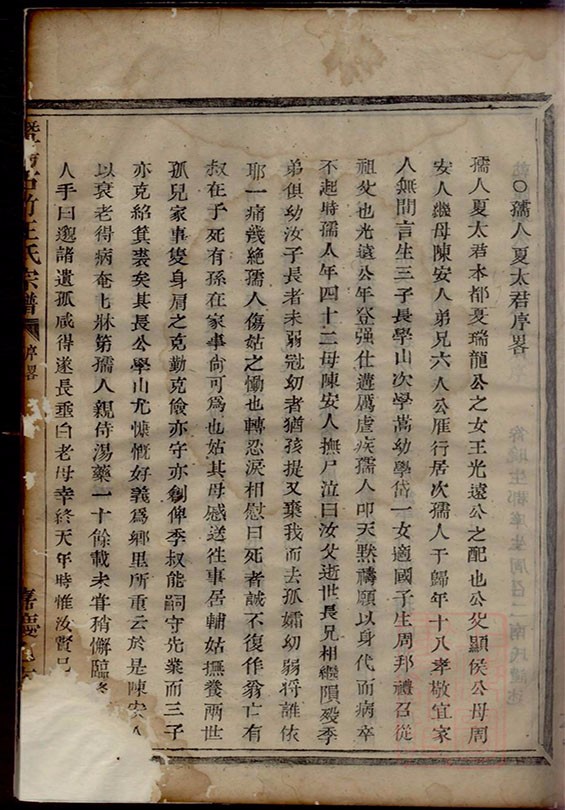 ○孺人夏太君序畧
孺人夏太君本都夏瑞龍公之女王光遠公之配也公父顯侯公母周
安人繼母陳安人弟兄六人公雁行居次孺人于歸年十八孝敬宜家
人無間言生三子長學山次學嵩幼學岱一女適國子生周邦禮召從
祖父也光遠公年登强仕遘厲虐疾孺人叩天黙禱願以身代而病卒
不起時孺人年四十二母陳安人撫尸泣曰汝父逝世長兄相繼隕殁季
弟俱幼汝子長者未弱冠幼者猶孩提又棄我而去孤孀幼弱将誰依
耶一痛幾絶孺人傷姑之慟也轉忍淚相慰曰死者誠不復作翁亡有
叔在子死有孫在家事尙可爲也姑其毋感送徃事居輔姑撫養两世
孤兒家事隻身肩之克勤克儉亦守亦創俾季叔能嗣守先業而三子
亦克紹箕裘矣其長公學山尤慷慨好義爲鄉里所重云於是陳安人
以衰老得病奄七牀第孺人親侍湯藥一十餘載未甞稍懈臨終
人手曰邈諸遺孤咸得遂長垂白老母幸終天年時惟汝賢
石前王氏宗譜
序畧
嘉慶